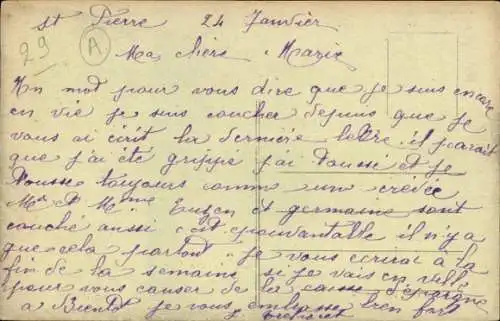 St Pierre 24 Janvier
29 A
Ma chère Marie
Un mot pour vous dire que je suis encore
en vie je suis coucher depuis que je
vous ai écrit la dernière lettre. il parait
que j'ai été grippé j'ai Toussé et je
Tousse toujours comme une crevée
Mr et Mme Eugen et germaine sont
couché aussi c'est épouvantable il n'y a
que cela partout je vous écrirai à la
fin de la semaine si je vais en ville
pour vous causer de la caisse d'épargne
a Bientôt je vous embrasse bien fort